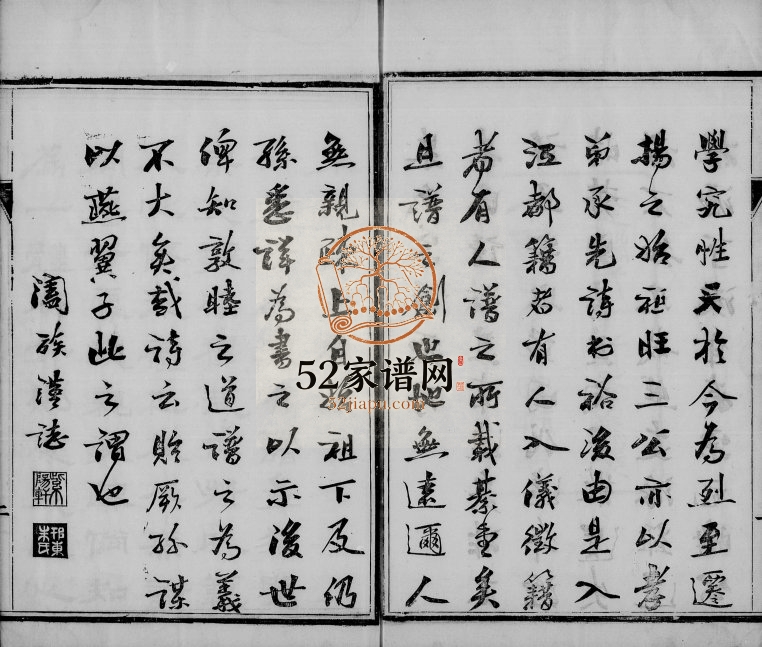 學究性天於今為烈至遷
揚之始祖旺三公亦以孝
弟承先詩書裕後由是入
江都籍者有人入儀徵籍
者有人譜之所載綦重矣
且譜之創也無遠邇人
無親疎上自祖下及仍
孫悉詳為書之以示後世
俾知敦睦之道譜之為義
不大矣哉詩云貽厥孫謀
以燕翼子此之謂也
闔族謹誌
紫陽軒
邗東朱氏
52家谱网
52jiapu.com